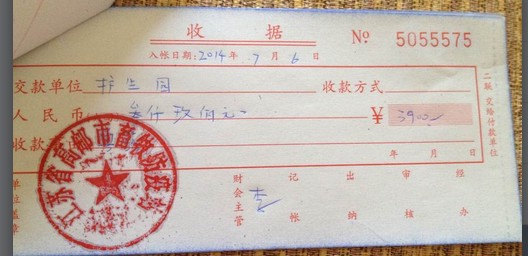 收 据
№ 5055575
入帐日期：2014年 7月 6日
交款单位 护兰园 收款方式
人民币 叁仟玖佰元 ¥ 3900
收款
年 月 日
二联 交给付款单位
单位盖章 财会主管 记帐 出纳 审核 经办
江苏省高邮市